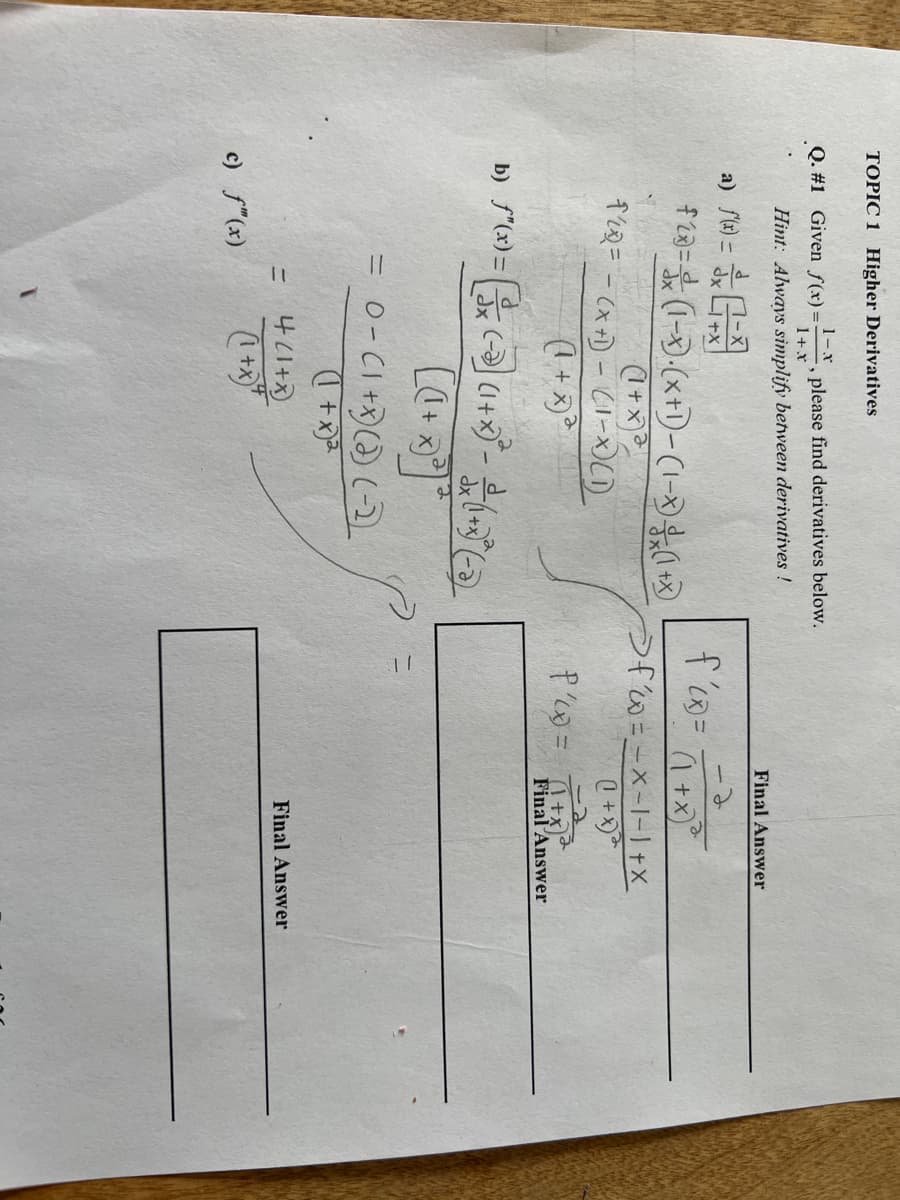 TOPIC 1 Higher Derivatives
Q. #1 Given f(x) = (1-x)/(1+x), please find derivatives below.
Hint: Always simplify between derivatives !
Final Answer
a) f'(x) = d/dx [(1-x)/(1+x)]
f'(x) = -2/(1+x)²
f'(x) = (d/dx (1-x)·(x+1) - (1-x) d/dx (1+x))/(1+x)²
f'(x) = (-x-1-1+x)/(1+x)²
f'(x) = (-(x+1) - (1-x)(1))/(1+x)²
f'(x) = -2/(1+x)²
Final Answer
b) f"(x) = ([d/dx (-2)] (1+x)² - d/dx (1+x)² (-2))/[(1+x)²]²
=
= (0-(1+x)(2)(-2))/(1+x)²
= 4(1+x)/(1+x)⁴
Final Answer
c) f'''(x)